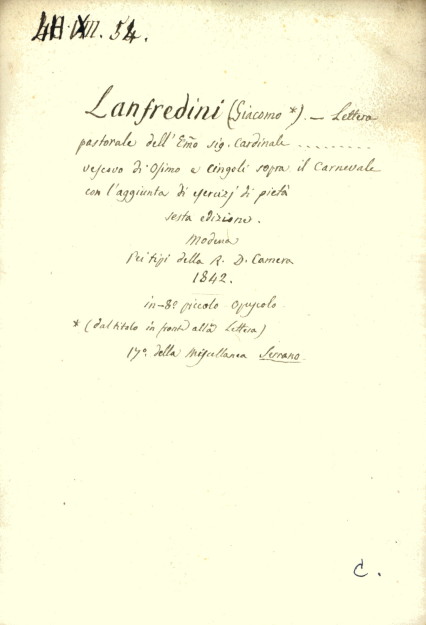 VIII. 54.
Lanfredini (Giacomo *). — Lettera
pastorale dell' Em̃o sig. Cardinale .........
vescovo di Osimo e Cingoli sopra il Carnevale
con l'aggiunta di esercizj di pietà
sesta edizione.
Modena
Pei tipi della R. D. Camera
1842.
in-8º piccolo Opuscolo
* (dal titolo in fronte alla Lettera)
17º della Miscellanea Serrano.
C.